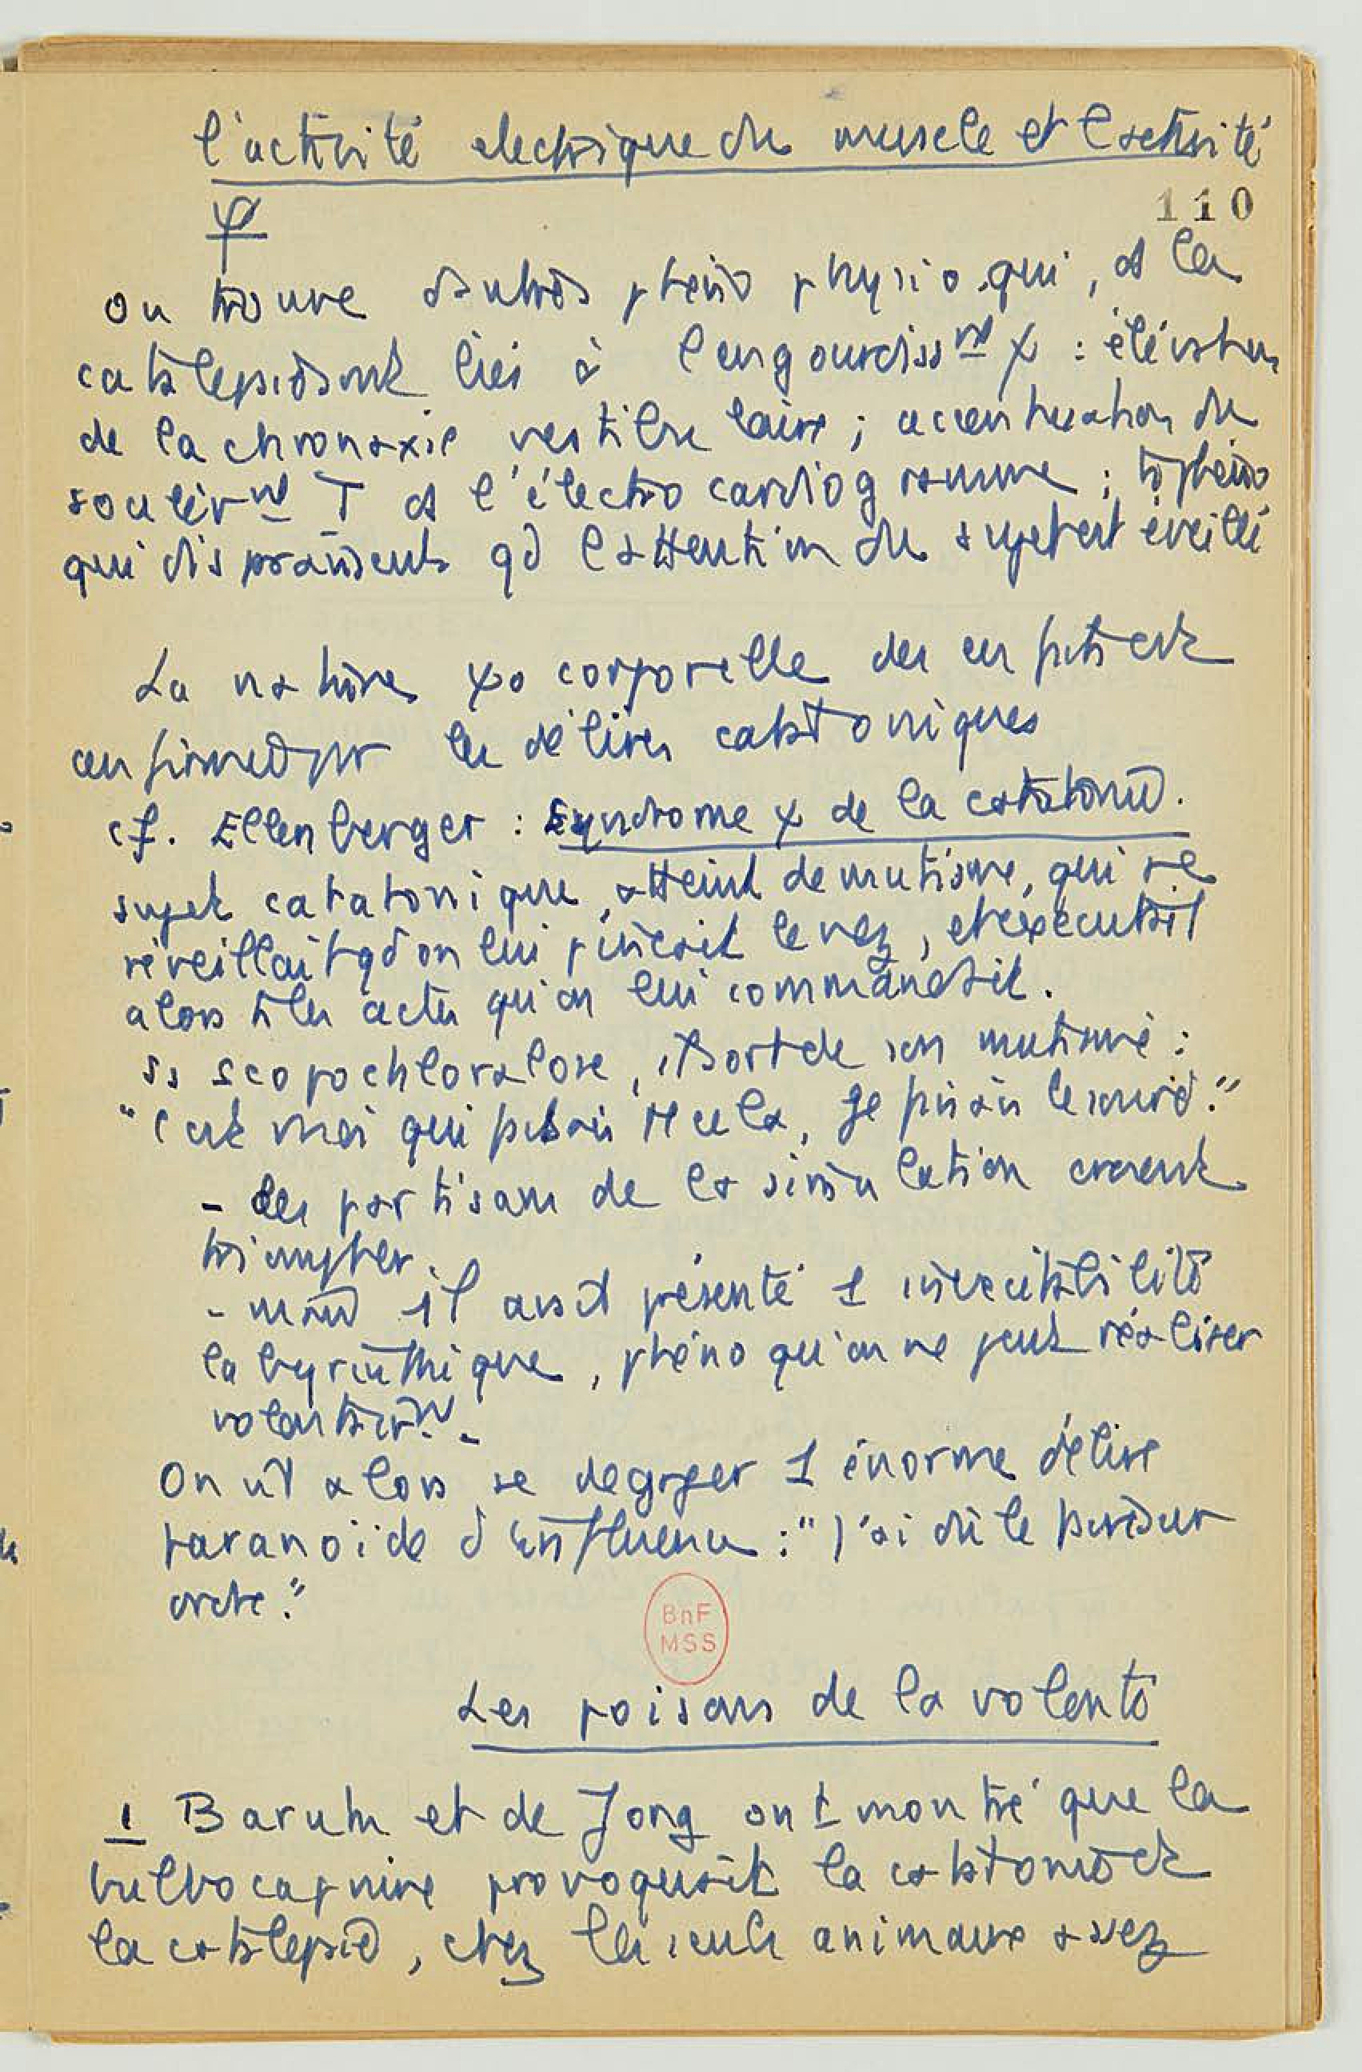 l'activité electrique du muscle et l'activité
110
ψ
on trouve d'autres phéno physio. qui, ds la
catalepsie sont liés à l'engourdissnt ψ : élévation
de la chronaxie vestibulaire ; accentuation du
soulèvnt T ds l'électrocardiogramme ; ts phéno
qui disparaissent qd l'attention du sujet est éveillé
La nature ψo corporelle des est
confirmée par les délires catatoniques
cf. Ellenberger : Syndrome ψ de la catatonie.
sujet catatonique, atteint de mutisme, qui se
réveillait qd on lui pinçait le nez, et exécutait
alors ts les actes qu'on lui commandait.
ss scopochloralose, il sort de son mutisme :
"C'est moi qui faisais tt cela, je faisais le sourd."
- Les partisans de la simulation croient
triompher.
- mais il avait présenté 1 inexcitabilité
labyrinthique, phéno qu'on ne peut réaliser
volontairnt.
On vit alors se dégager 1 énorme délire
paranoïde d'influence : "j'ai dû le faire sur
ordre."
BnF
MSS
Les poisons de la volonté
1 Baruk et de Jong ont montré que la
bulbocapnine provoquait la catatonie et
la catalepsie, chez les seuls animaux assez